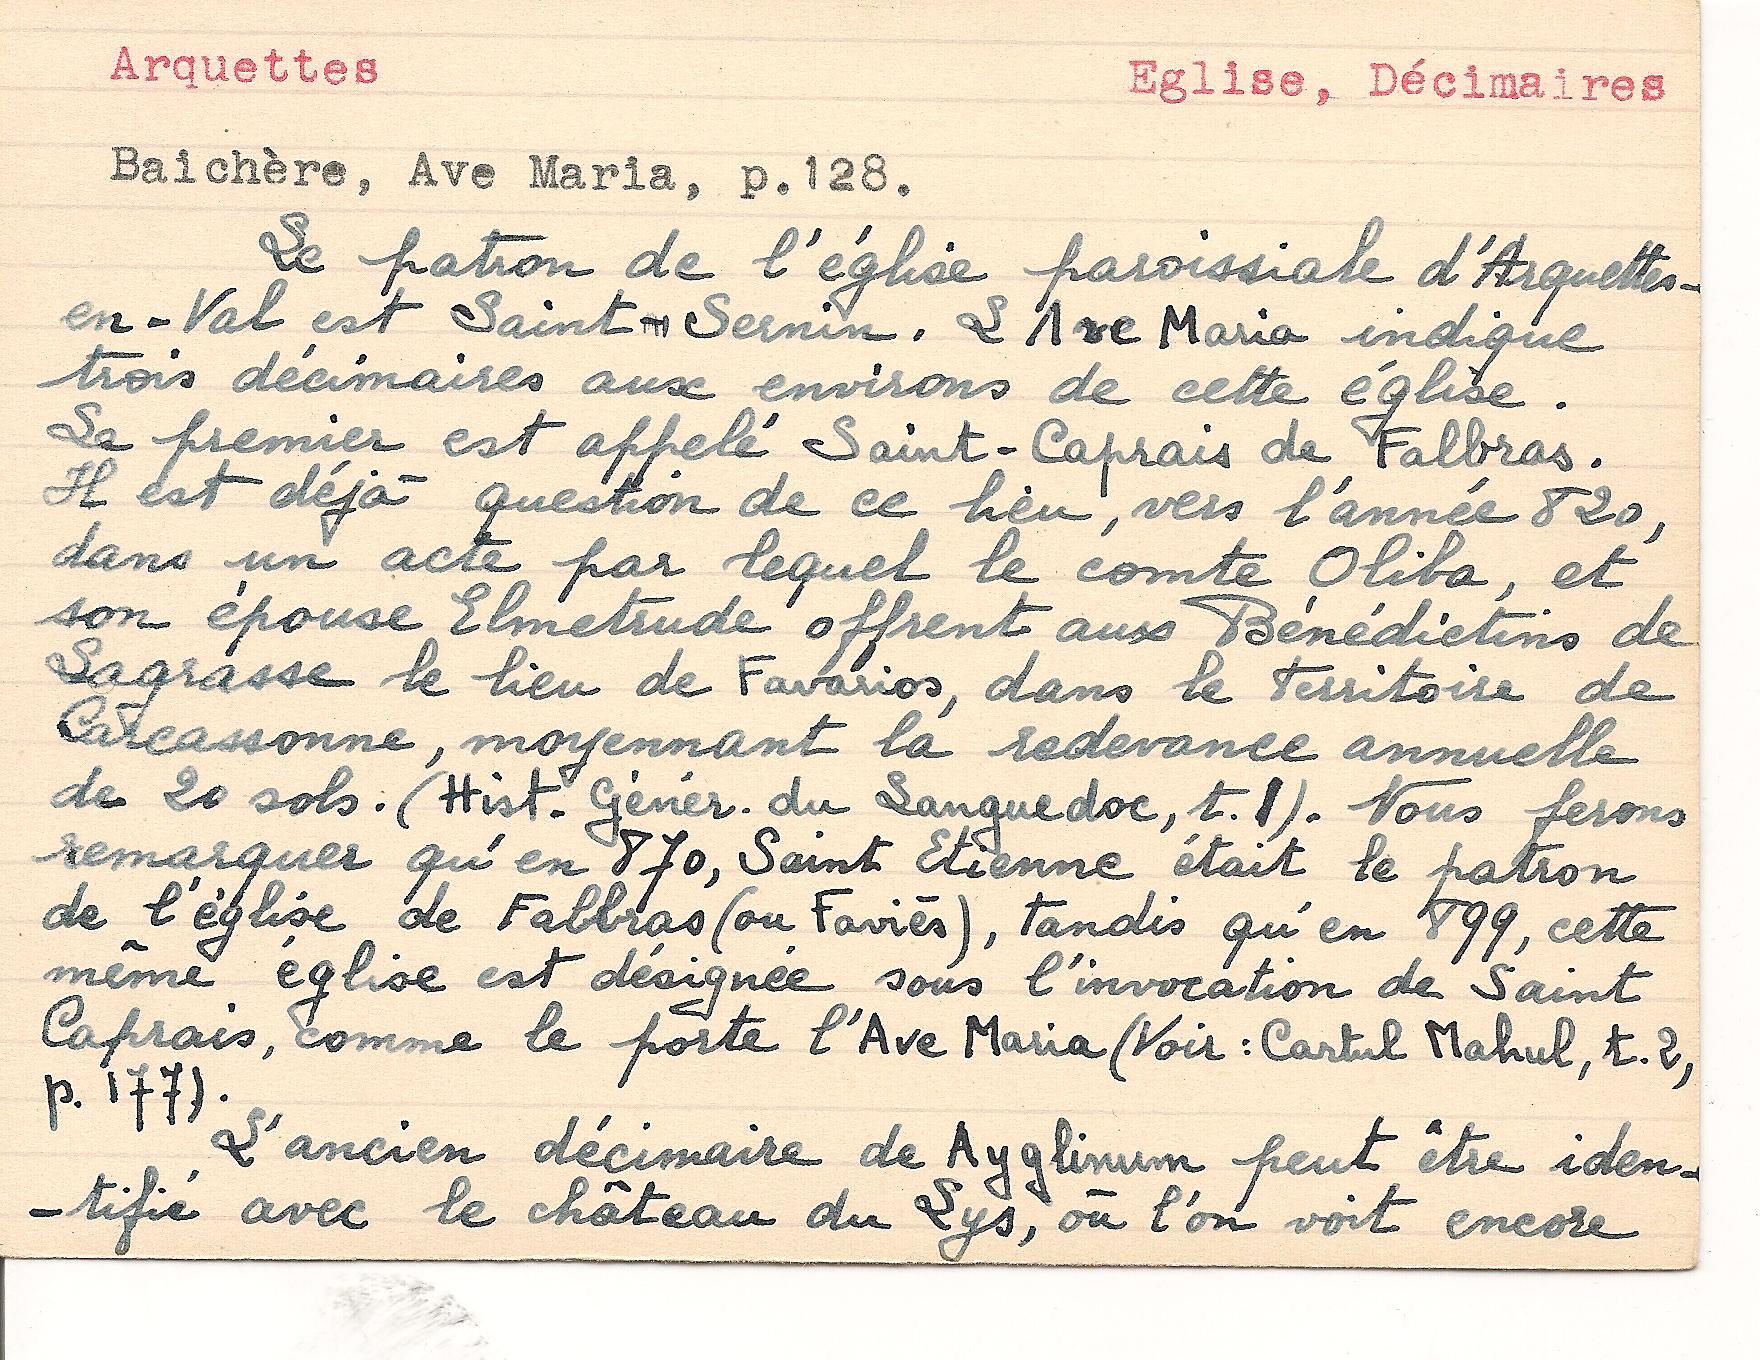 Arquettes
Eglise, Décimaires
Baichère, Ave Maria, p.128.
Le patron de l'église paroissiale d'Arquettes-
en-Val est Saint-Sernin. L'Ave Maria indique
trois décimaires aux environs de cette église.
Le premier est appelé Saint-Caprais de Falbras.
Il est déjà question de ce lieu, vers l'année 820,
dans un acte par lequel le comte Oliba, et
son épouse Elmetrude offrent aux Bénédictins de
Lagrasse le lieu de Favarios, dans le territoire de
Carcassonne, moyennant la redevance annuelle
de 20 sols. (Hist. Génér. du Languedoc, t. 1). Nous ferons
remarquer qu'en 870, Saint Etienne était le patron
de l'église de Falbras (ou Faviès), tandis qu'en 899, cette
même église est désignée sous l'invocation de Saint
Caprais, comme le porte l'Ave Maria (Voir : Cartul Mahul, t. 2,
p. 177).
L'ancien décimaire de Ayglinum peut être iden-
-tifié avec le château du Lys, où l'on voit encore